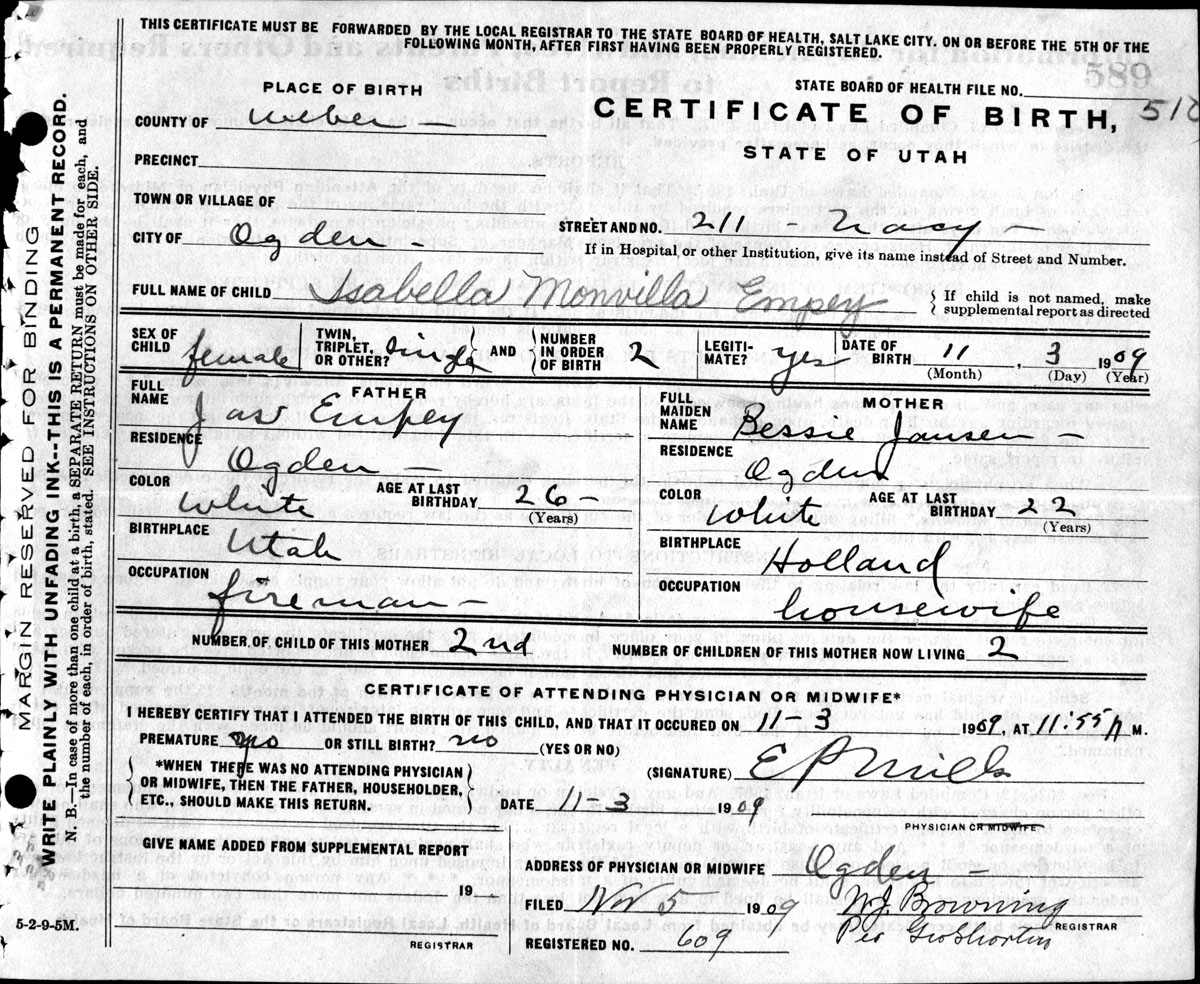 THIS CERTIFICATE MUST BE FORWARDED BY THE LOCAL REGISTRAR TO THE STATE BOARD OF HEALTH, SALT LAKE CITY, ON OR BEFORE THE 5TH OF THE
FOLLOWING MONTH, AFTER FIRST HAVING BEEN PROPERLY REGISTERED.
589
PLACE OF BIRTH
STATE BOARD OF HEALTH FILE NO.
COUNTY OF Weber
CERTIFICATE OF BIRTH,
PRECINCT
STATE OF UTAH
TOWN OR VILLAGE OF
STREET AND NO. 211 -
CITY OF Ogden -
If in Hospital or other Institution, give its name instead of Street and Number.
FULL NAME OF CHILD Isabella Monvilla Empey { If child is not named, make supplemental report as directed
SEX OF CHILD female TWIN, TRIPLET, OR OTHER? single AND NUMBER IN ORDER OF BIRTH 2 LEGITI-MATE? yes DATE OF BIRTH 11, 3 1909
(Month) (Day) (Year)
FATHER
FULL NAME Jas Empey
RESIDENCE
Ogden -
COLOR White AGE AT LAST BIRTHDAY 26 -
(Years)
BIRTHPLACE Utah
OCCUPATION
fireman -
MOTHER
FULL MAIDEN NAME Bessie Jansen -
RESIDENCE
Ogden
COLOR White AGE AT LAST BIRTHDAY 22
(Years)
BIRTHPLACE Holland
OCCUPATION
housewife
NUMBER OF CHILD OF THIS MOTHER 2nd NUMBER OF CHILDREN OF THIS MOTHER NOW LIVING 2
CERTIFICATE OF ATTENDING PHYSICIAN OR MIDWIFE*
I HEREBY CERTIFY THAT I ATTENDED THE BIRTH OF THIS CHILD, AND THAT IT OCCURED ON 11-3 1909, AT 11:55 M.
PREMATURE no OR STILL BIRTH? no (YES OR NO)
*WHEN THERE WAS NO ATTENDING PHYSICIAN
OR MIDWIFE, THEN THE FATHER, HOUSEHOLDER,
ETC., SHOULD MAKE THIS RETURN.
(SIGNATURE) E P Mills
DATE 11-3 1909
PHYSICIAN OR MIDWIFE
GIVE NAME ADDED FROM SUPPLEMENTAL REPORT
19
REGISTRAR
ADDRESS OF PHYSICIAN OR MIDWIFE Ogden -
FILED Nov 5 1909 W. J. Browning
REGISTRAR
Per Geo Shorten
REGISTERED NO. 609
5-2-9-5M.
MARGIN RESERVED FOR BINDING
WRITE PLAINLY WITH UNFADING INK--THIS IS A PERMANENT RECORD.
N. B.—In case of more than one child at a birth, a SEPARATE RETURN must be made for each, and
the number of each, in order of birth, stated. SEE INSTRUCTIONS ON OTHER SIDE.